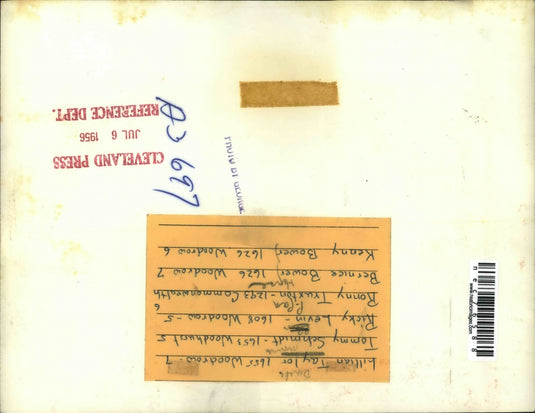 Lillian Taylor - 1655 Woodrow - 7
Tommy Schmidt - 1653 Woodhurst 5
Ricky Levin - 1608 Woodrow - 5
Ronny Truxton - 1293 Commonwealth 6
Bernice Bower, 1626 Woodrow 7
Kenny Bower, 1626 Woodrow 6
CLEVELAND PRESS
JUL 6 1956
REFERENCE DEPT.
697